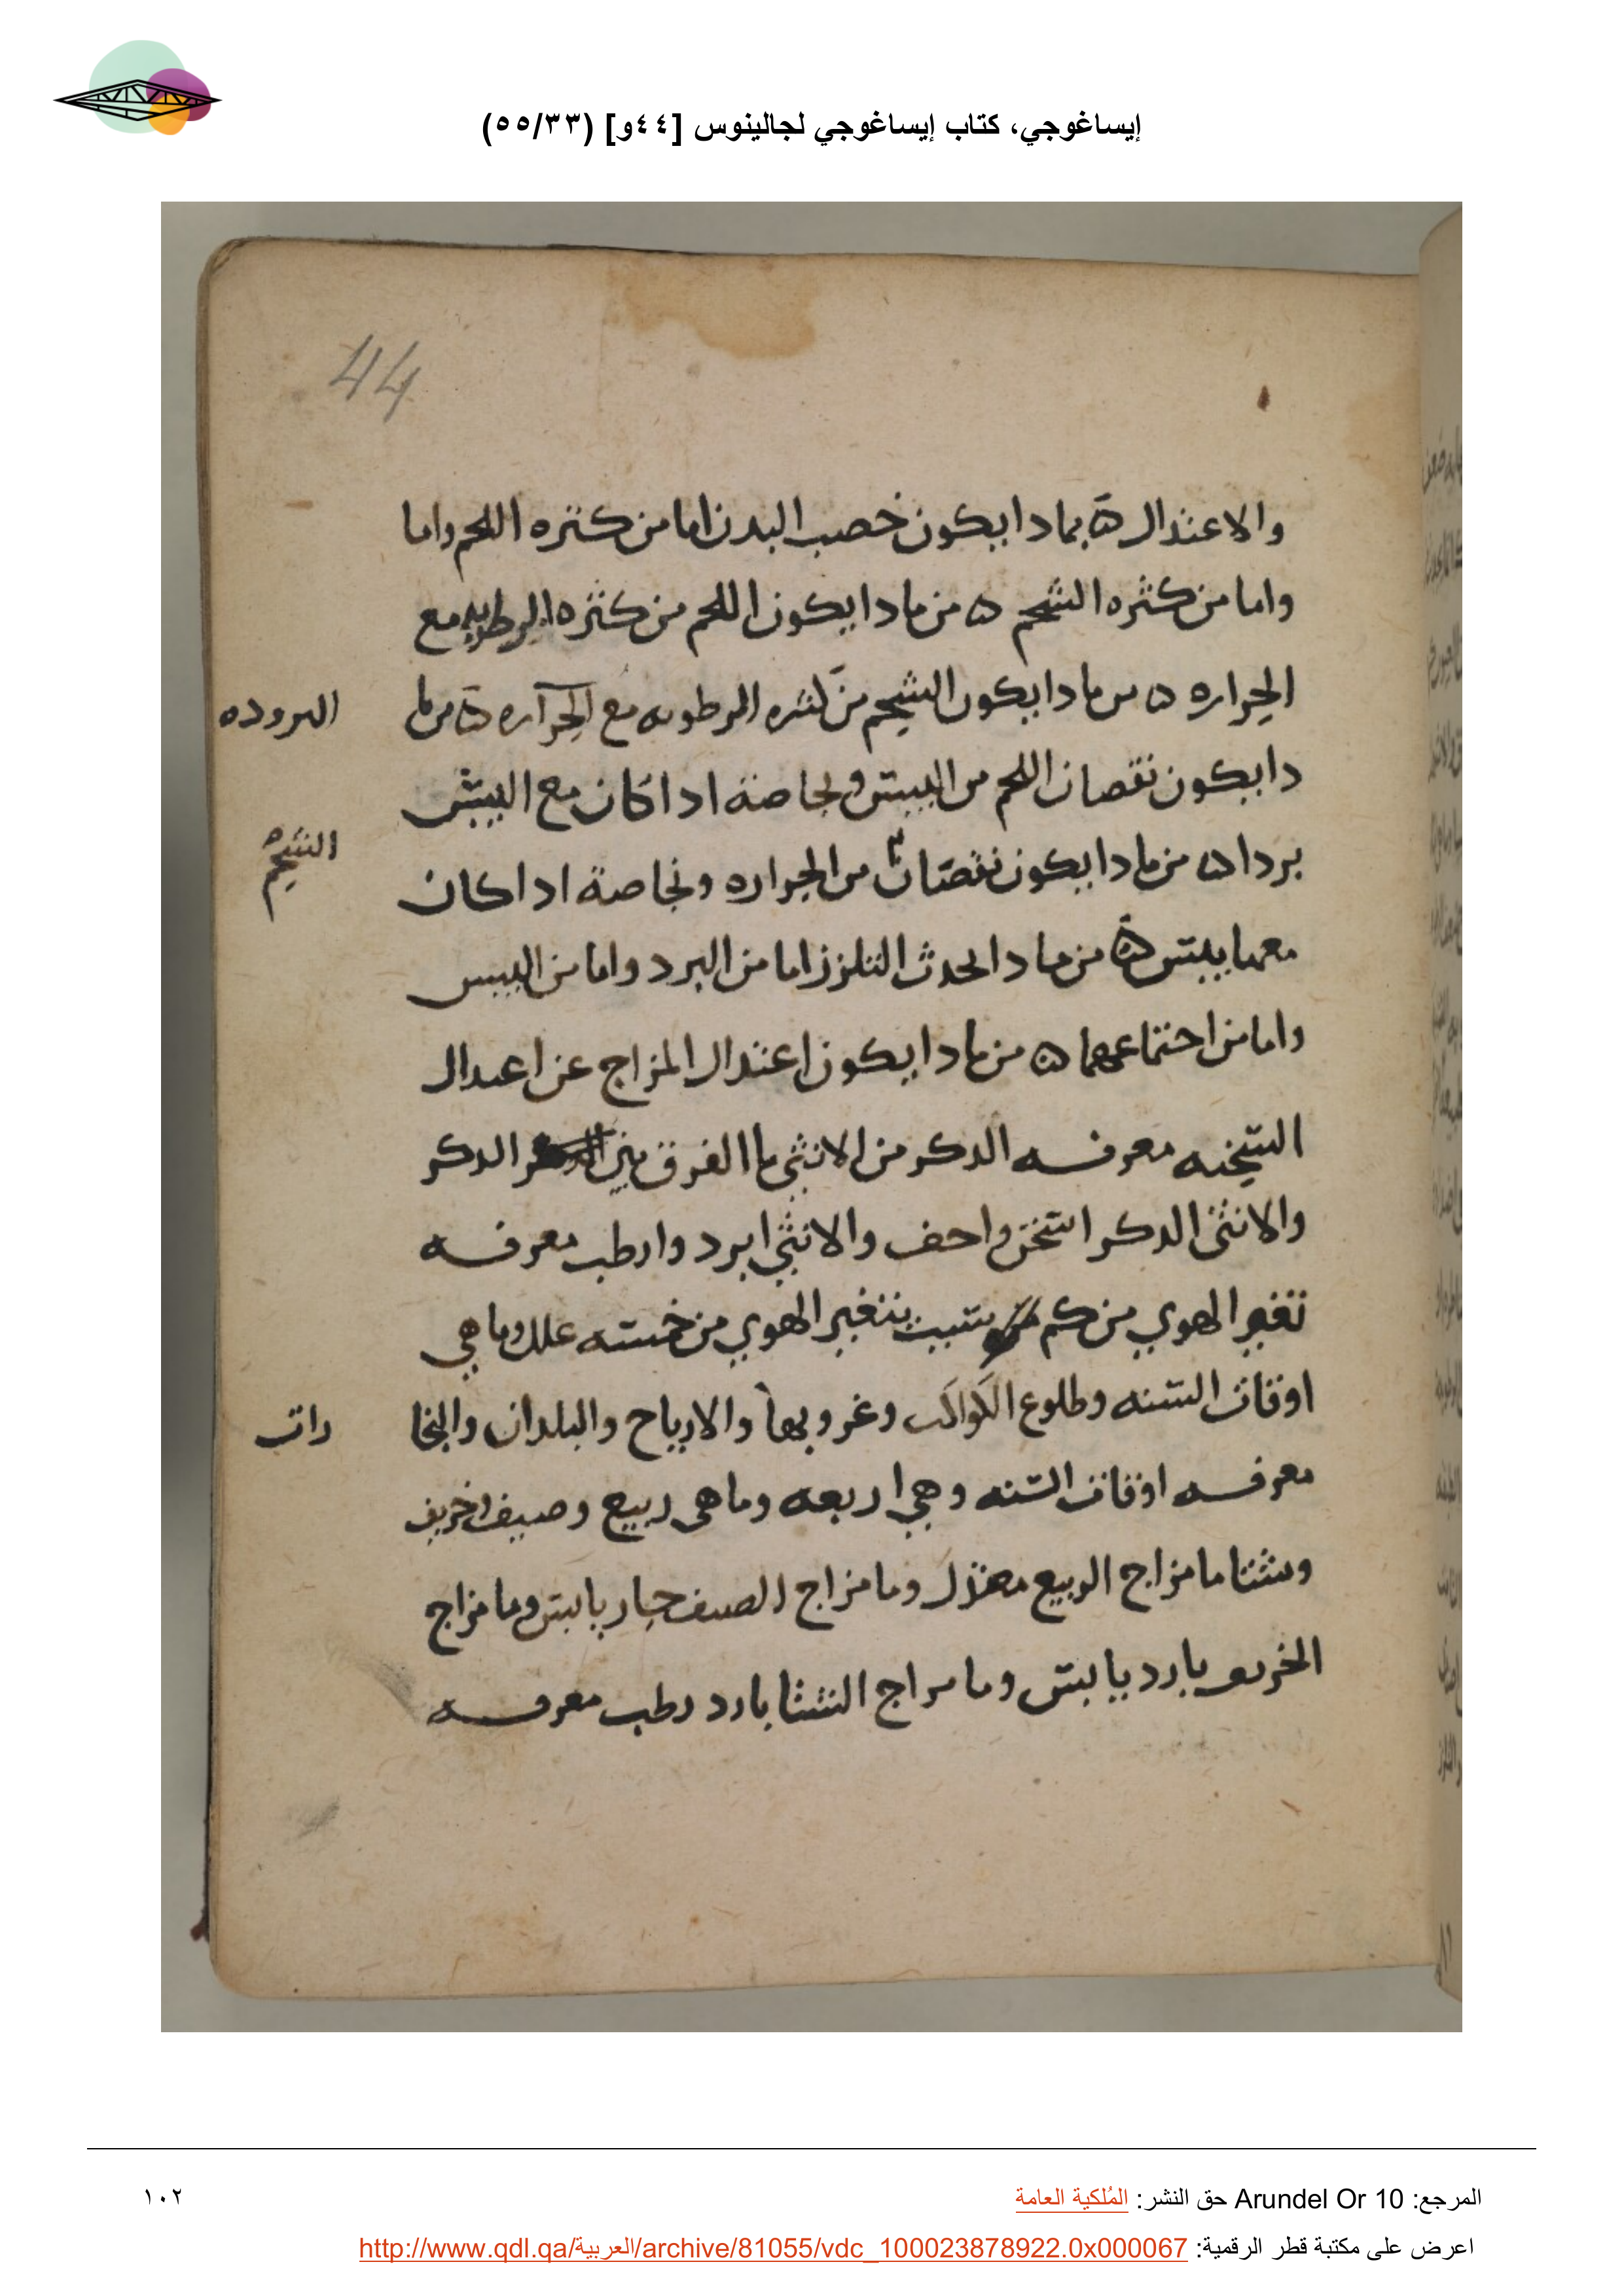 إيساغوجي، كتاب إيساغوجي لجالينوس [٤٤و] (٥٥/٣٣)
44
والاعتدال ه بمادا يكون خصب البدن اما من كثره اللحم واما
واما من كثره الشحم ه من مادا يكون اللحم من كثره الرطوبه مع
الحراره ه من مادا يكون الشحم من كثره الرطوبه مع الحراره ه من ما
البروده
دا يكون نقصان اللحم من اليبس وبخاصة ادا كان مع اليبس
بردا ه من مادا يكون نقصان من الحراره وبخاصة ادا كان
الشحم
معها يبس ه من مادا يحدث التلزز اما من البرد واما من اليبس
واما من اجتماعهما ه من مادا يكون اعتدال المزاج عن اعتدال
السخنه معرفه الدكر من الانثى ما الفرق بين الدكر
والانثى الدكر اسخن واجف والانثى ابرد وارطب معرفه
تغير الهوي من كم سبب يتغير الهوي من خمسه علل وما هي
اوقات السنه وطلوع الكواكب وغروبها والارياح والبلدان والبخا
رات
معرفه اوقات السنه وهي اربعه وما هى ربيع وصيف وخريف
وشتا ما مزاج الربيع معتدل وما مزاج الصيف حار يابس وما مزاج
الخريف بارد يابس وما مزاج الشتا بارد رطب معرفه
المرجع: Arundel Or 10 حق النشر: المُلكية العامة
١٠٢
اعرض على مكتبة قطر الرقمية: http://www.qdl.qa/العربية/archive/81055/vdc_100023878922.0x000067